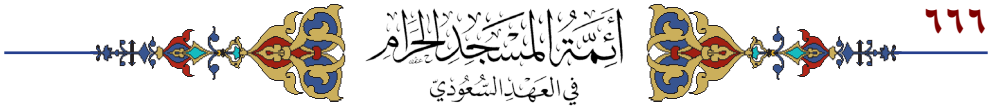 ٦٦٦
أَئِمَّةُ المَسْجِدِ الحَرَامِ
فِي العَهْدِ السُّعُودِيّ